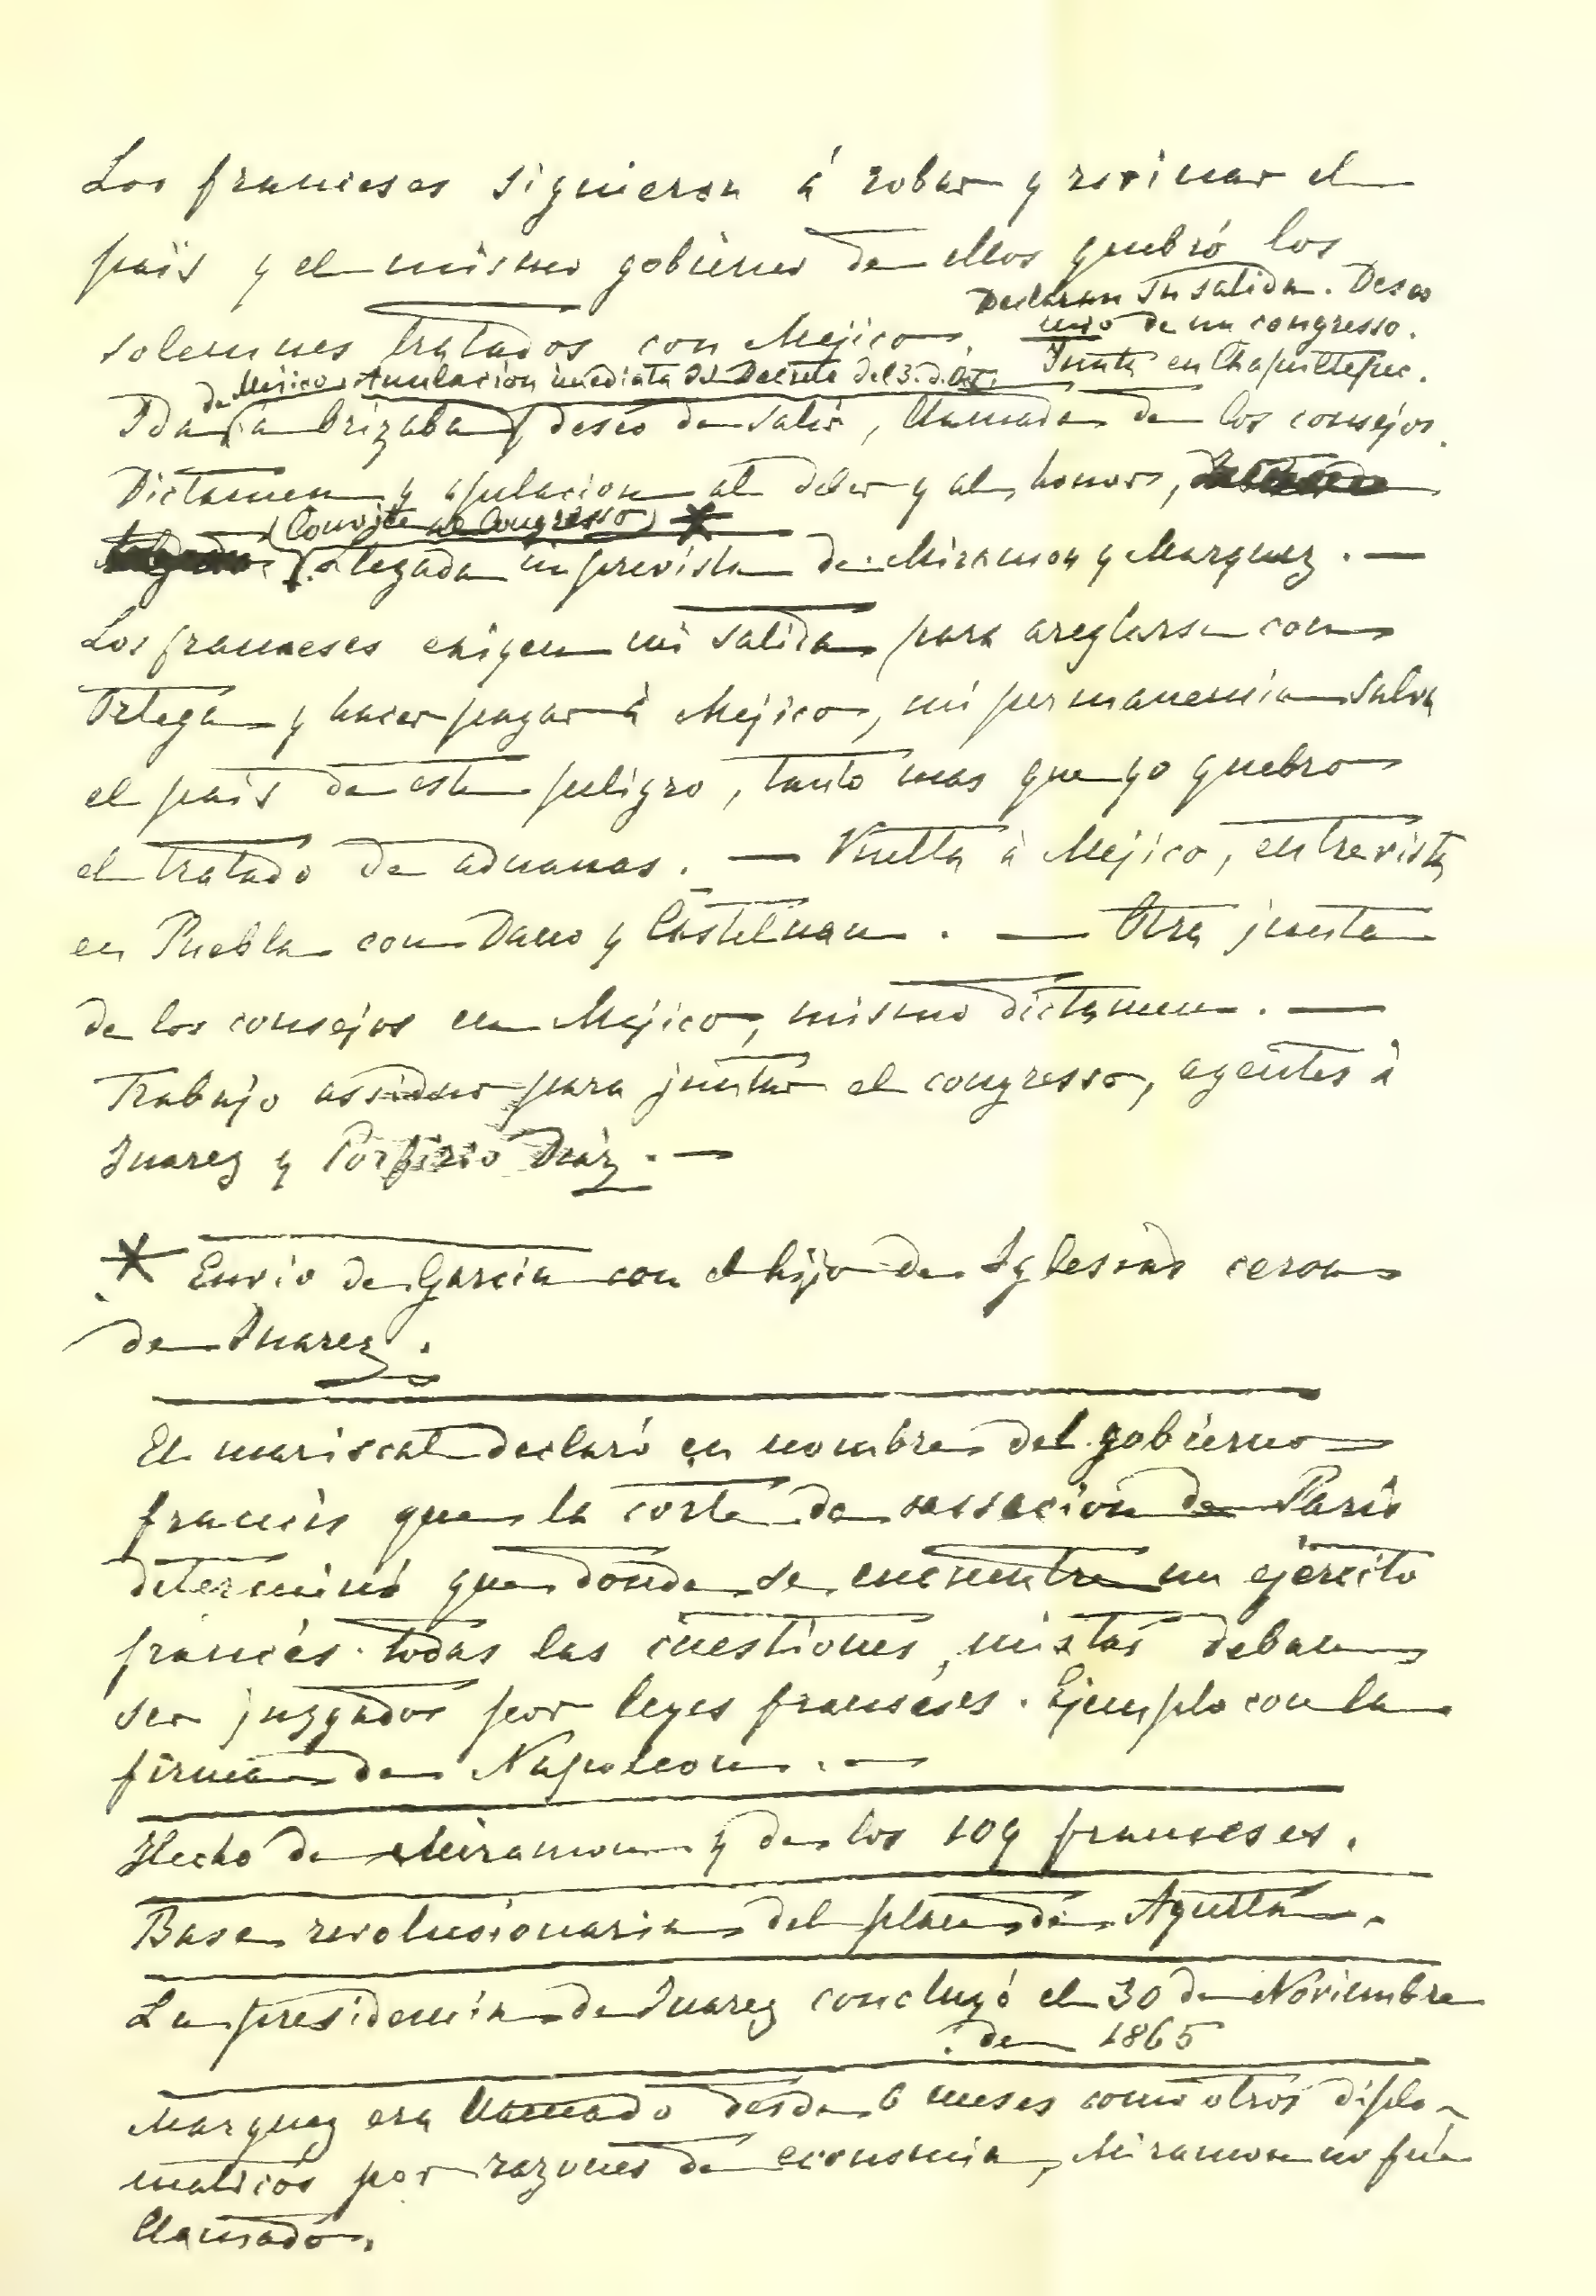 Los franceses siguieron á robar y ruinar el
païs y el mismo gobierno de ellos quebró los
solemnes tratados con Mejico.
Declaran su salida. Deseo
mio de un congresso.
Junta en Chapultepec.
de Mejico, Anulacion imediata del Decreto del 3. d. Oct.
Ida á Orizaba deseo de salir, llamada de los consejos.
Dictamen y apelacion al deber y al honor,
(Convite al Congresso) *
Llegada imprevista de Miramon y Marquez. —
Los franceses exigen mi salida para areglarse con
Ortega y hacer pagar á Mejico, mi permanencia salva
el païs de este peligro, tanto mas que yo quebro
el tratado de aduanas. — Vuelta à Mejico, entrevista
en Puebla con Dano y Castelnau. — Otra junta
de los consejos en Mejico, mismo dictamen. —
Trabajo assiduo para juntar el congresso, agentes à
Juarez y Porfirio Diaz. —
* Envio de Garcia con el hijo de Iglesias cerca
de Juarez.
El mariscal declaró en nombre del gobierno
francés que la corte de cassacion de Paris
determinó que donde se encuentre un ejército
francés todas las cuestiones mistas deban
ser juzgados por leyes franceses. Ejemplo con la
firma de Napoleon. —
Hecho de Miramon y de los 109 franceses.
Base revolucionaria del plan de Ayutla.
La presidencia de Juarez concluyó el 30 de Noviembre
de 1865
Marquez era llamado desde 6 meses como otros diplo-
maticos por razones de economia, Miramon no fué
llamado.